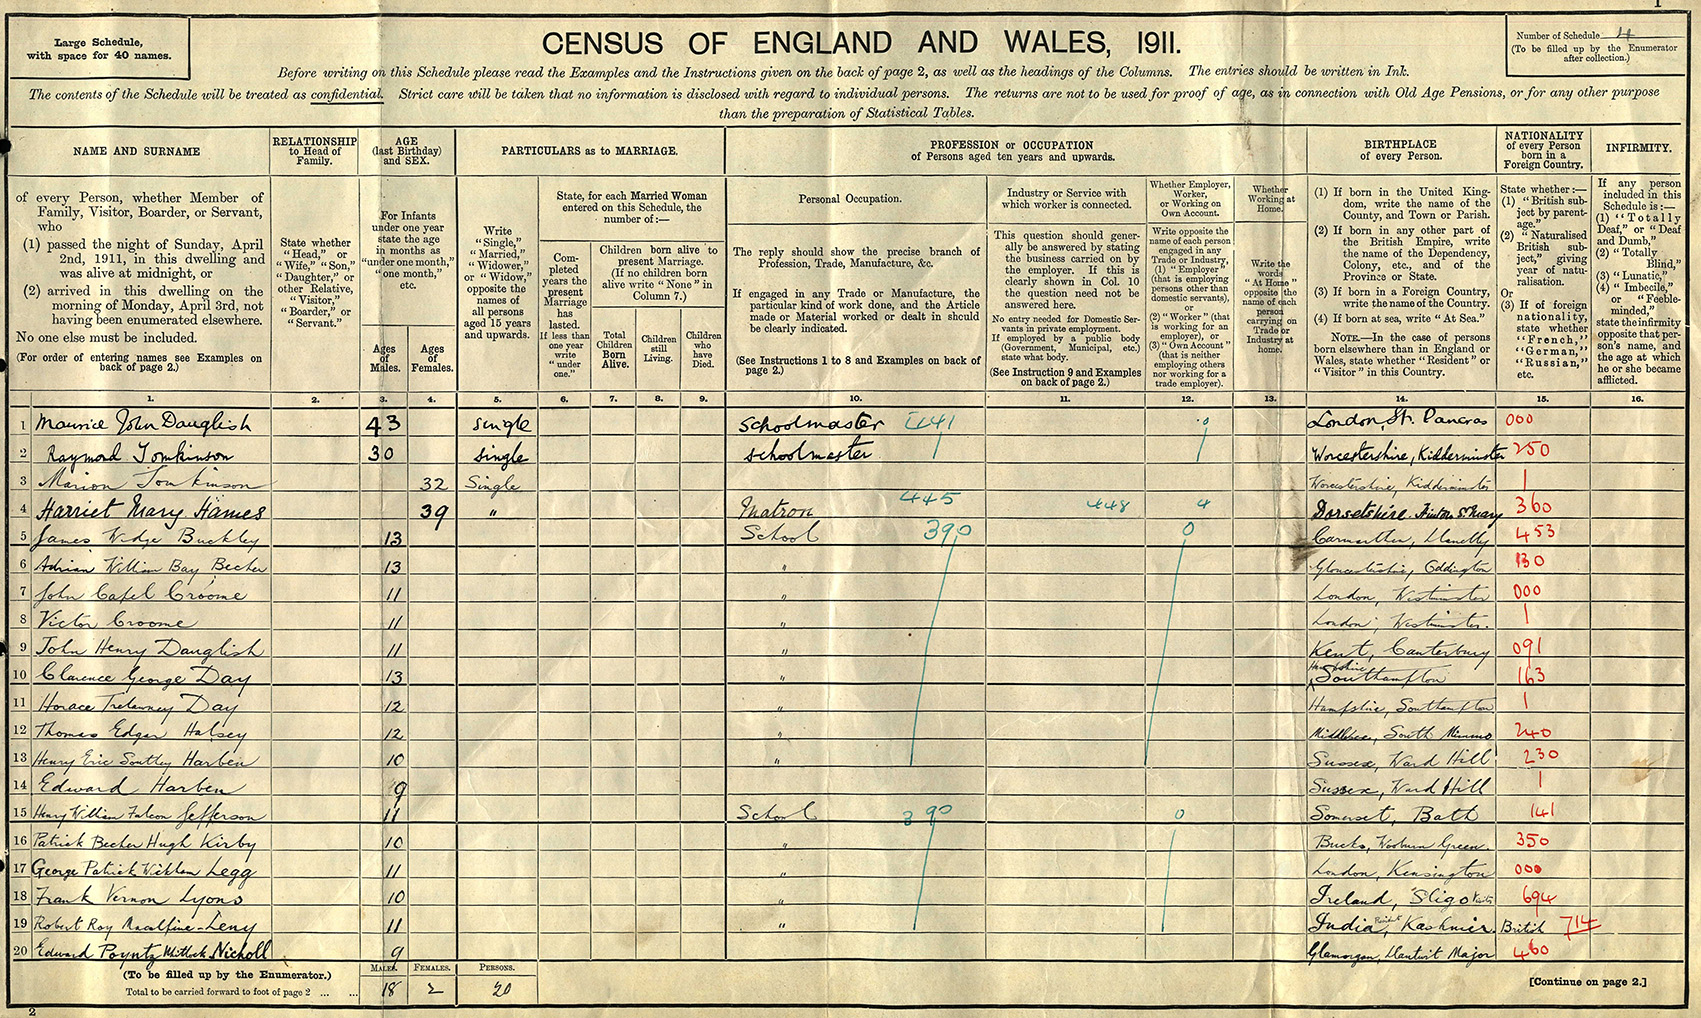 1
Large Schedule,
with space for 40 names.
CENSUS OF ENGLAND AND WALES, 1911.
Number of Schedule 4
(To be filled up by the Enumerator
after collection.)
Before writing on this Schedule please read the Examples and the Instructions given on the back of page 2, as well as the headings of the Columns. The entries should be written in Ink.
The contents of the Schedule will be treated as confidential. Strict care will be taken that no information is disclosed with regard to individual persons. The returns are not to be used for proof of age, as in connection with Old Age Pensions, or for any other purpose
than the preparation of Statistical Tables.
NAME AND SURNAME
of every Person, whether Member of
Family, Visitor, Boarder, or Servant,
who
(1) passed the night of Sunday, April
2nd, 1911, in this dwelling and
was alive at midnight, or
(2) arrived in this dwelling on the
morning of Monday, April 3rd, not
having been enumerated elsewhere.
No one else must be included.
(For order of entering names see Examples on
back of page 2.)
RELATIONSHIP
to Head of
Family.
State whether
"Head," or
"Wife," "Son,"
"Daughter," or
other Relative,
"Visitor,"
"Boarder," or
"Servant."
AGE
(last Birthday)
and SEX.
For Infants
under one year
state the age
in months as
"under one month,"
"one month,"
etc.
Ages
of
Males.
Ages
of
Females.
PARTICULARS as to MARRIAGE.
Write
"Single,"
"Married,"
"Widower,"
or "Widow,"
opposite the
names of
all persons
aged 15 years
and upwards.
State, for each Married Woman
entered on this Schedule, the
number of:—
Com-
pleted
years the
present
Marriage
has
lasted.
If less than
one year
write
"under
one."
Children born alive to
present Marriage.
(If no children born
alive write "None" in
Column 7.)
Total
Children
Born
Alive.
Children
still
Living.
Children
who
have
Died.
PROFESSION or OCCUPATION
of Persons aged ten years and upwards.
Personal Occupation.
The reply should show the precise branch of
Profession, Trade, Manufacture, &c.
If engaged in any Trade or Manufacture, the
particular kind of work done, and the Article
made or Material worked or dealt in should
be clearly indicated.
(See Instructions 1 to 8 and Examples on back of
page 2.)
Industry or Service with
which worker is connected.
This question should gener-
ally be answered by stating
the business carried on by
the employer. If this is
clearly shown in Col. 10
the question need not be
answered here.
No entry needed for Domestic Ser-
vants in private employment.
If employed by a public body
(Government, Municipal, etc.)
state what body.
(See Instruction 9 and Examples
on back of page 2.)
Whether Employer,
Worker,
or Working on
Own Account.
Write opposite the
name of each person
engaged in any
Trade or Industry,
(1) "Employer"
(that is employing
persons other than
domestic servants),
or
(2) "Worker" (that
is working for an
employer), or
(3) "Own Account"
(that is neither
employing others
nor working for a
trade employer).
Whether
Working at
Home.
Write the
words
"At Home"
opposite the
name of each
person
carrying on
Trade or
Industry at
home.
BIRTHPLACE
of every Person.
(1) If born in the United King-
dom, write the name of the
County, and Town or Parish.
(2) If born in any other part of
the British Empire, write
the name of the Dependency,
Colony, etc., and of the
Province or State.
(3) If born in a Foreign Country,
write the name of the Country.
(4) If born at sea, write "At Sea."
NOTE.—In the case of persons
born elsewhere than in England or
Wales, state whether "Resident" or
"Visitor" in this Country.
NATIONALITY
of every Person
born in a
Foreign Country.
State whether:—
(1) "British sub-
ject by parent-
age."
(2) "Naturalised
British sub-
ject," giving
year of natu-
ralisation.
Or
(3) If of foreign
nationality,
state whether
"French,"
"German,"
"Russian,"
etc.
INFIRMITY.
If any person
included in this
Schedule is:—
(1) "Totally
Deaf," or "Deaf
and Dumb,"
(2) "Totally
Blind,"
(3) "Lunatic,"
(4) "Imbecile,"
or "Feeble-
minded,"
state the infirmity
opposite that per-
son's name, and
the age at which
he or she became
afflicted.
1. 2. 3. 4. 5. 6. 7. 8. 9. 10. 11. 12. 13. 14. 15. 16.
1 Maurice John Dauglish 43 Single Schoolmaster 0 London, St. Pancras 000
2 Raymond Tomkinson 30 Single Schoolmaster Worcestershire, Kidderminster 250
3 Marion Tomkinson 32 Single Worcestershire, Kidderminster 1
4 Harriet Mary Hames 39 " Matron 445 448 4 Dorsetshire. St. Mary 360
5 James Wedge Buckley 13 School 390 0 Carmarthen, Llanelly 453
6 Adrian William Bay Becher 13 " Gloucestershire, Oddington 130
7 John Capel Croome 11 " London, Westminster 000
8 Victor Croome 11 " London, Westminster. 1
9 John Henry Dauglish 11 " Kent, Canterbury 091
10 Clarence George Day 13 " Hampshire Southampton 163
11 Horace Trelawney Day 12 " Hampshire, Southampton 1
12 Thomas Edgar Halsey 12 " Middlesex, South Mimms 240
13 Henry Eric Southey Harben 10 " Sussex, Ward Hill 230
14 Edward Harben 9 Sussex, Ward Hill 1
15 Henry William Falcon Jefferson 11 School 390 0 Somerset, Bath 141
16 Patrick Becher Hugh Kirby 10 " Bucks, Wooburn Green. 350
17 George Patrick Wickham Legg 11 " London, Kensington 000
18 Frank Vernon Lyons 10 " Ireland, Sligo 694
19 Robert Roy Macalpine-Leny 11 " India, Resident Kashmir. British 714
20 Edward Poyntz Whitlock Nicholl 9 Glamorgan, Llantwit Major 460
(To be filled up by the Enumerator.)
Total to be carried forward to foot of page 2 ... ...
MALES. FEMALES. PERSONS.
18 2 20
[Continue on page 2.]
2